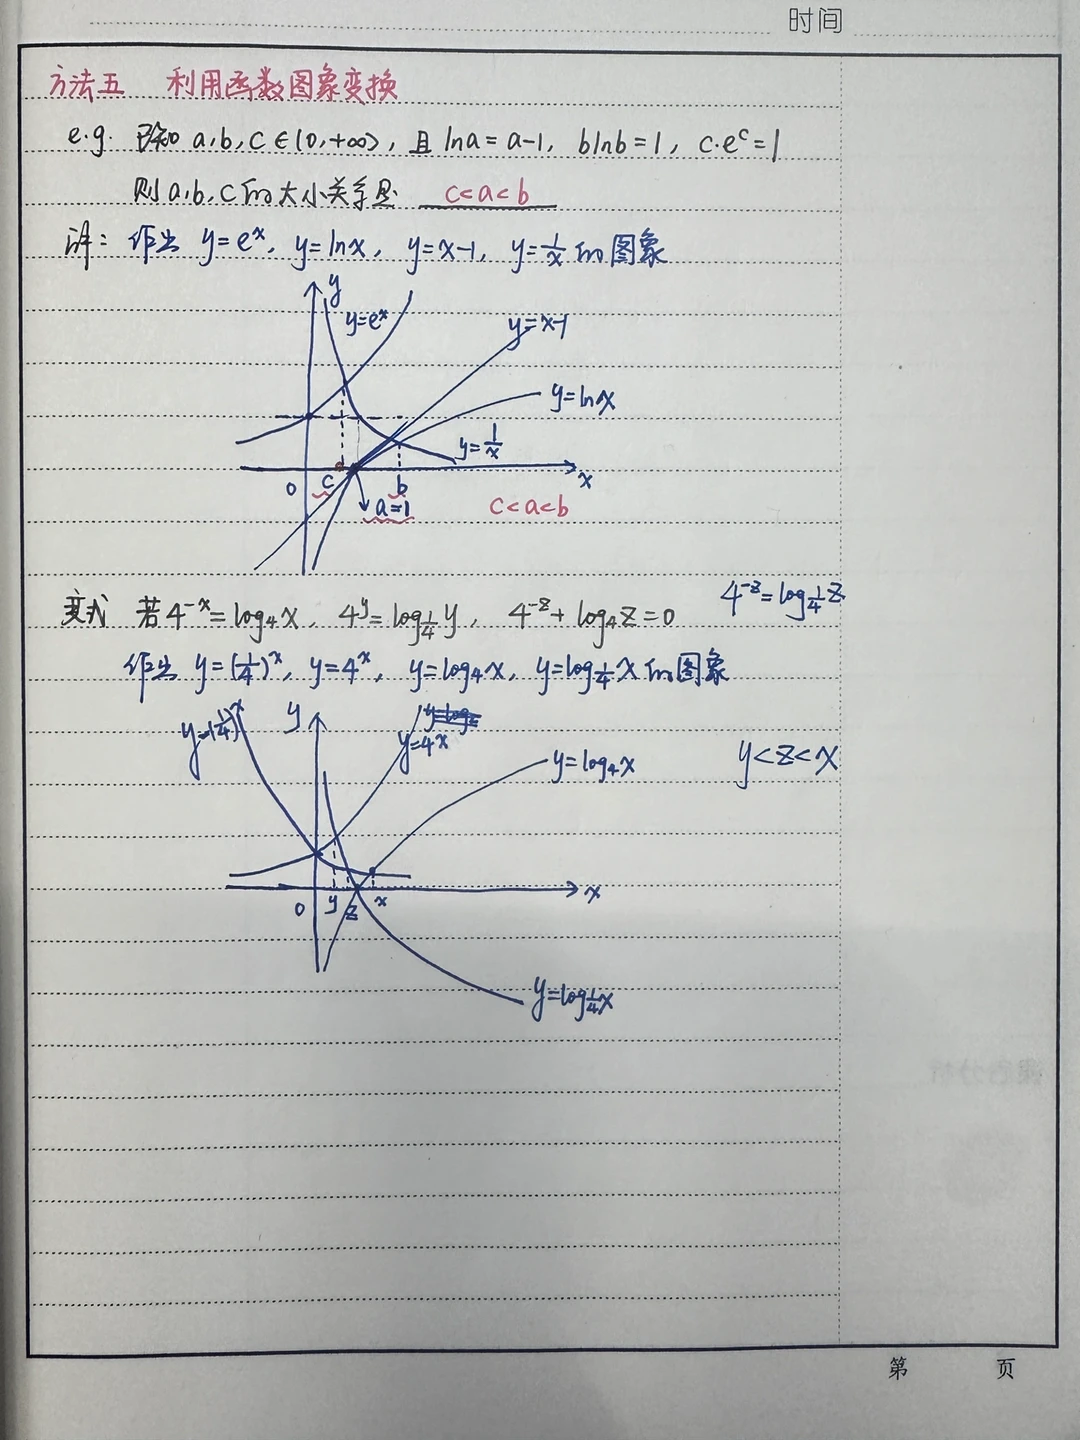 时间
方法五 利用函数图象变换
e.g. 已知 a,b,c∈(0,+∞), 且 lna=a-1, blnb=1, c·e^c=1
则 a,b,c的大小关系是 c<a<b
详: 作出 y=e^x, y=lnx, y=x-1, y=1/x 的图象
y
y=e^x
y=x-1
y=lnx
y=1/x
0 c b x
a=1 c<a<b
变式 若4^-x=log₄x, 4^y=log_{1/4}y, 4^-z+log₄z=0 4^-z=log_{1/4}z
作出 y=(1/4)^x, y=4^x, y=log₄x, y=log_{1/4}x 的图象
y=(1/4)^x y
y=4^x
y=log₄x y<z<x
0 y z x x
y=log_{1/4}x
第 页